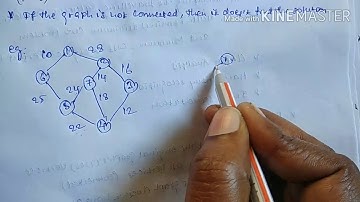 * If the graph is not connected, then it doesn't find solution
Made with
KINEMASTER
eg:
10 1 28
2
6 14 16
7 3
25 24 18 12
5
22 4
1